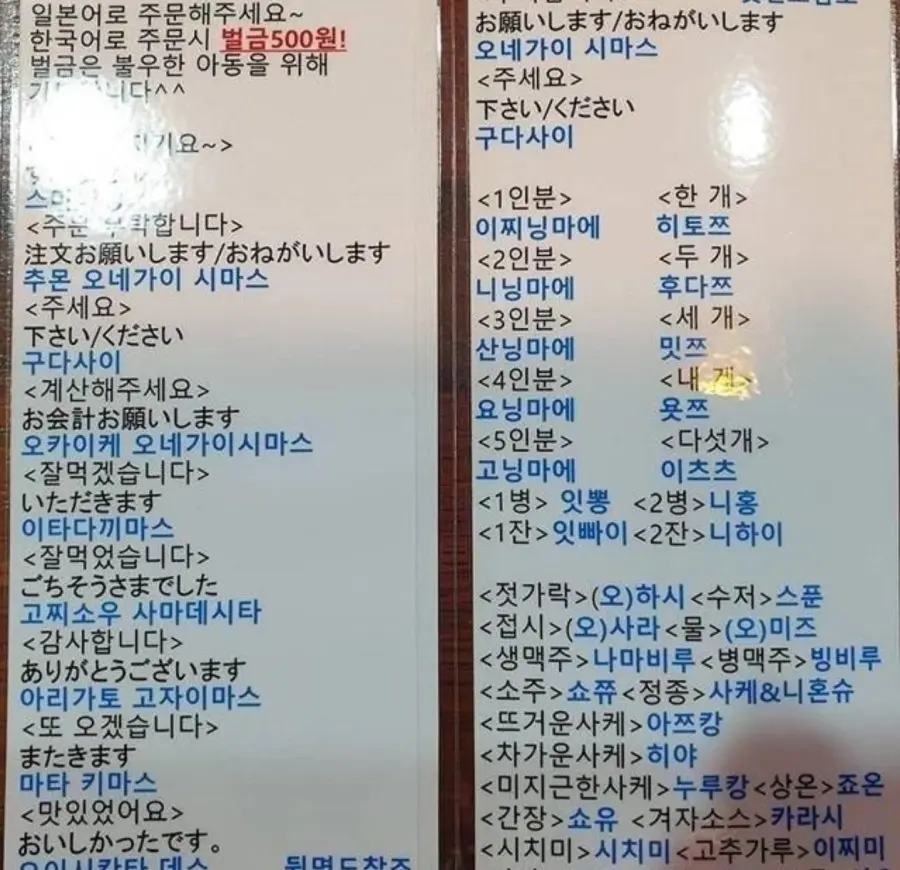 일본어로 주문해주세요~
한국어로 주문시 벌금500원!
벌금은 불우한 아동을 위해
니다^^
기요~>
<주문 부탁합니다>
注文お願いします/おねがいします
추몬 오네가이 시마스
<주세요>
下さい/ください
구다사이
<계산해주세요>
お会計お願いします
오카이케 오네가이시마스
<잘먹겠습니다>
いただきます
이타다끼마스
<잘먹었습니다>
ごちそうさまでした
고찌소우 사마데시타
<감사합니다>
ありがとうございます
아리가토 고자이마스
<또 오겠습니다>
またきます
마타 키마스
<맛있었어요>
おいしかったです。
오이시캇타 데스
お願いします/おねがいします
오네가이 시마스
<주세요>
下さい/ください
구다사이
<1인분> <한 개>
이찌닝마에 히토쯔
<2인분> <두 개>
니닝마에 후다쯔
<3인분> <세 개>
산닝마에 밋쯔
<4인분> <내 게>
요닝마에 욧쯔
<5인분> <다섯개>
고닝마에 이츠츠
<1병> 잇뽕 <2병>니홍
<1잔>잇빠이<2잔>니하이
<젓가락>(오)하시<수저>스푼
<접시>(오)사라<물>(오)미즈
<생맥주>나마비루<병맥주>빙비루
<소주>쇼쮸<정종>사케&니혼슈
<뜨거운사케>아쯔캉
<차가운사케>히야
<미지근한사케>누루캉<상온>죠온
<간장>쇼유 <겨자소스>카라시
<시치미>시치미<고추가루>이찌미